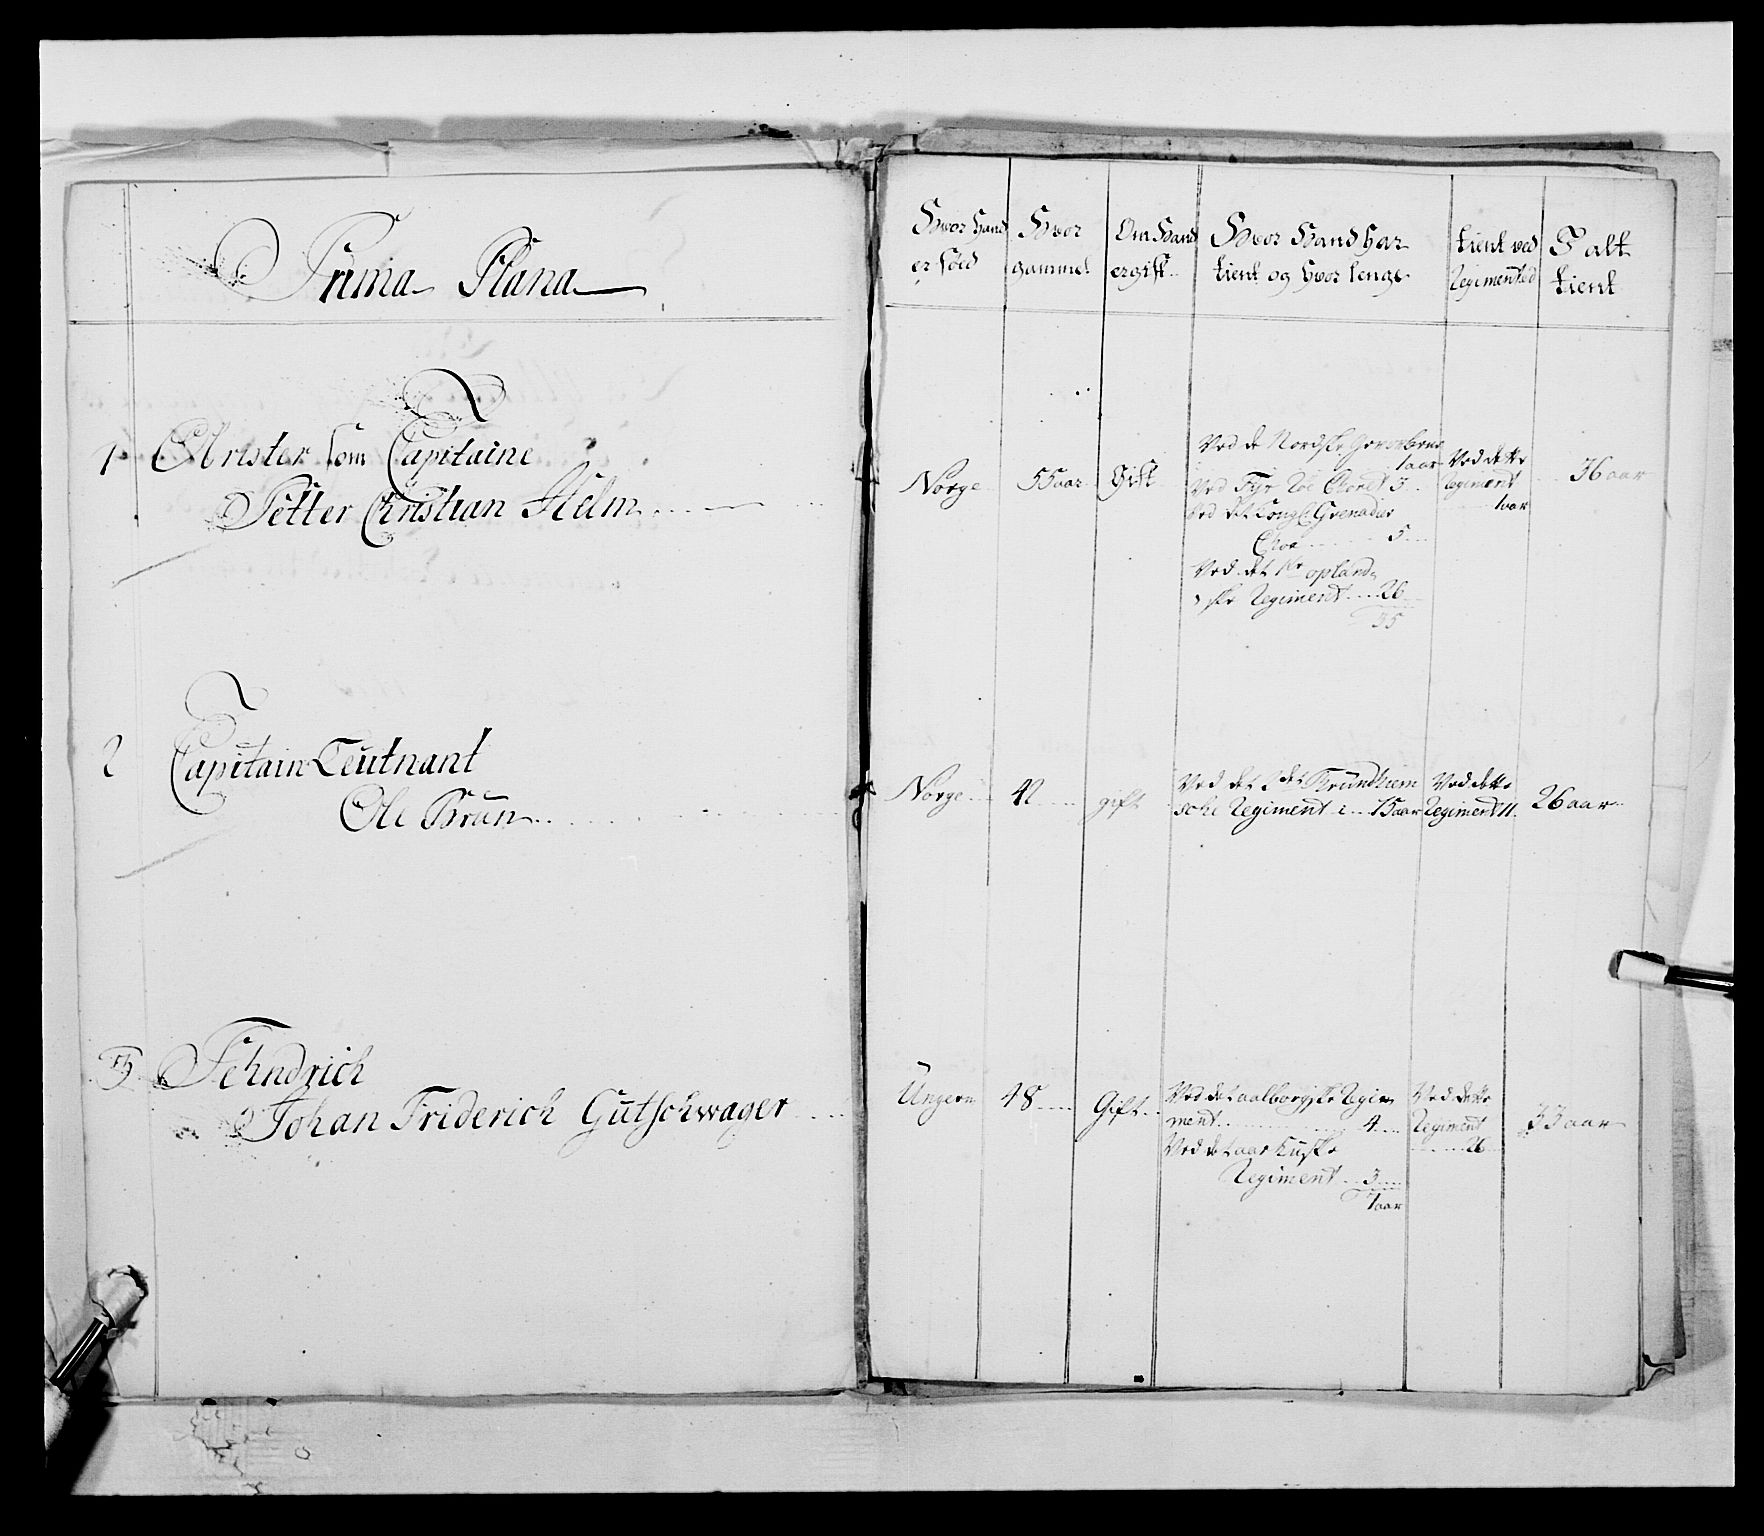 Prima Plana
Hvor Hand
er föed
Hvor
gammel
Om Hand
er gift
Hvor Hand har
tient og hvor lenge
tient ved
Regimented
I alt
tient
1
Arister som Capitaine
Petter Christian Helm
Norge
55 aar
Gift
Ved de Nordske
1 aar
Ved 3
Ved det Kongl: Grenadier
Chor 5
Ved det 1te opland-
ske Regiment 26
35
Ved dette
Regiment
1 aar
36 aar
2
Capitain Leutnant
Ole Brun
Norge
42
gift
Ved det 2det Trundhiem
sche Regiment i 15 aar
Ved dette
Regiment 11
26 aar
3
Fehndrich
Johan Friderich Gutschwager
Ungern
48
Gift
Ved det aalborgske Regim
ment 4
Ved det aarhuske
Regiment 3
7 aar
Ved dette
Regiment
26
33 aar